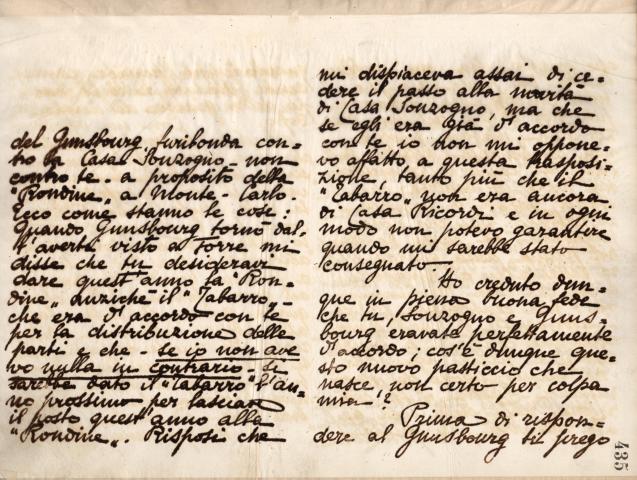 del Gunsbourg, furibonda con=
tro la Casa Sonzogno - non
contro te - a proposito della
"Rondine" a Monte-Carlo.
Ecco come stanno le cose:
Quando Gunsbourg tornò dal=
l'averti visto a Torre mi
disse che tu desideravi
dare quest'anno la "Ron=
dine" anziché il "Tabarro" -
che era d'accordo con te
per la distribuzione delle
parti e che - se io non ave
vo nulla in contrario - si
sarebbe dato il "Tabarro" l'an=
no prossimo per lasciare
il posto quest'anno alla
"Rondine". Risposi che
mi dispiaceva assai di ce=
dere il passo alla novità
di Casa Sonzogno, ma che
se egli era già d'accordo
con te io non mi oppone=
vo affatto, a questa trasposi=
zione, tanto più che il
"Tabarro" non era ancora
di Casa Ricordi e in ogni
modo non potevo garantire
quando mi sarebbe stato
consegnato.
Ho creduto dun=
que in piena buona fede
che tu, Sonzogno e Guns=
bourg eravate perfettamente
d'accordo; cos'è dunque que=
sto nuovo pasticcio che
nasce, non certo per colpa
mia!?
Prima di rispon=
dere al Gunsbourg ti prego
435